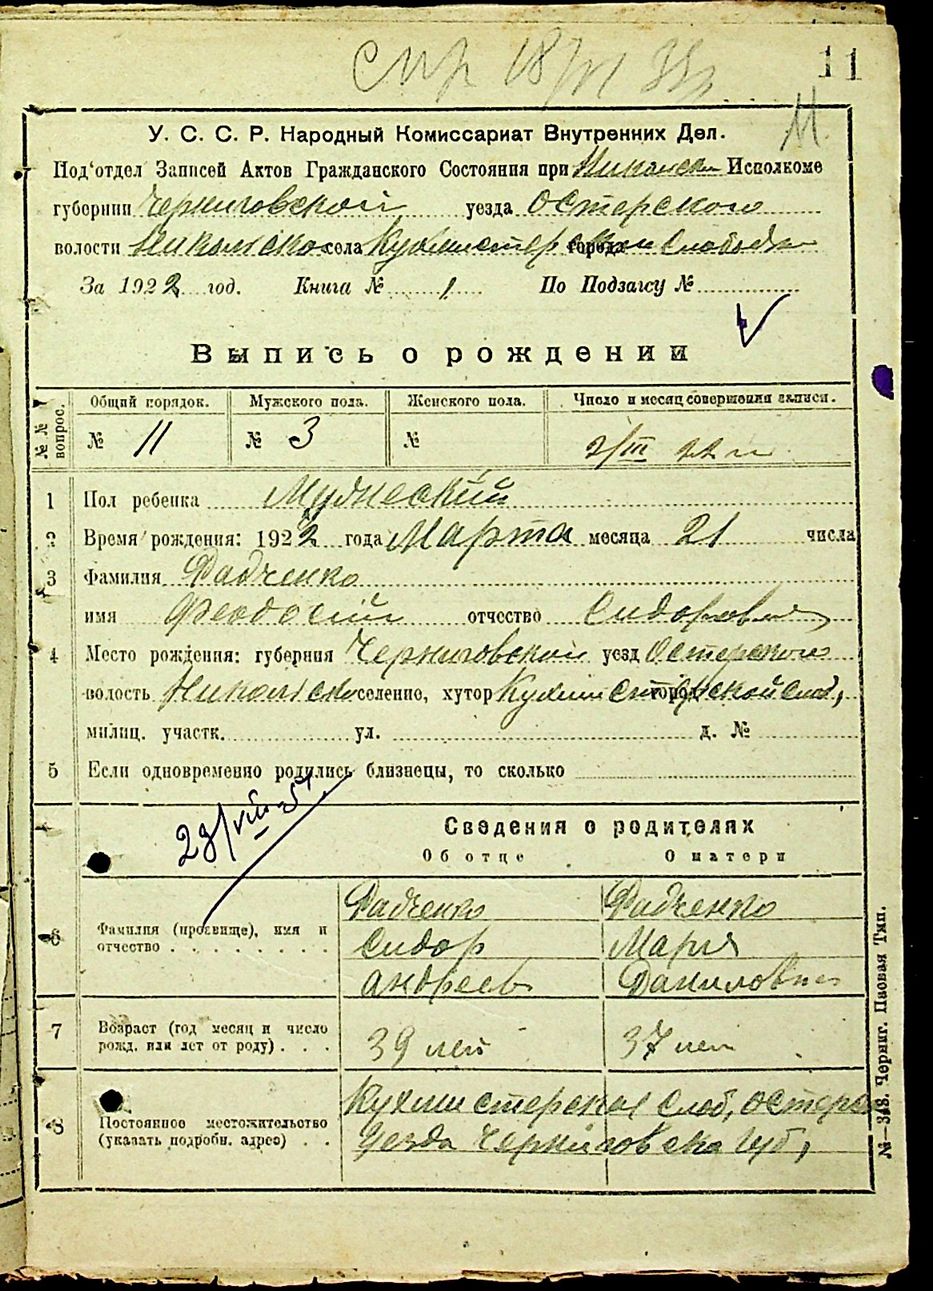 11
18/VI
11
У. С. С. Р. Народный Комиссариат Внутренних Дел.
Под'отдел Записей Актов Гражданского Состояния при Исполкоме
губернии Черниговской уезда Остерского
волости Никольской села Кухмистерской города Слободы
За 1922 год. Книга № 1 По Подзагсу №
Выпись о рождении
№ № вопрос. Общий порядок. Мужского пола. Женского пола. Число и месяц совершения записи.
№ 11 № 3 № 2/III 22 г.
1 Пол ребенка Мужеский
2 Время рождения: 1922 года Марта месяца 21 числа
3 Фамилия Радченко
имя Феодосій отчество Сидоров
4 Место рождения: губерния Черниговской уезд Остерского
волость Никольско селение, хутор Кухмистерской слоб, город
милиц. участк. ул. д. №
5 Если одновременно родились близнецы, то сколько
Сведения о родителях
Об отце О матери
6 Фамилия (прозвище), имя и отчество
Радченко Радченко
Сидор Мария
Андреев Даниловна
7 Возраст (год месяц и число рожд. или лет от роду)
39 лет 37 лет
8 Постоянное местожительство (указать подробн. адрес)
Кухмистерская Слоб, Остерс
Уезда Черниговска губ,
№ 348. Черниг. Паевая Тип.